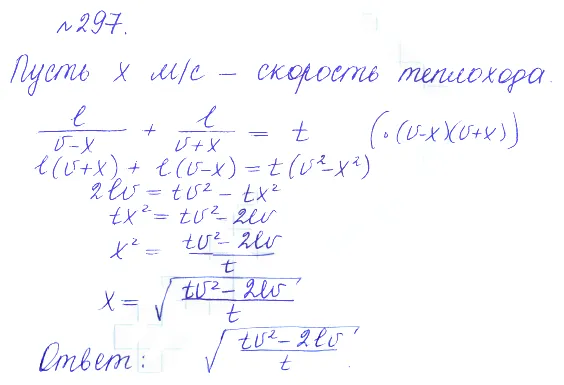 №297.
Пусть x м/с – скорость теплохода.
l/(v-x) + l/(v+x) = t (·(v-x)(v+x))
l(v+x) + l(v-x) = t(v²-x²)
2lv = tv² - tx²
tx² = tv² - 2lv
x² = (tv² - 2lv)/t
x = √((tv² - 2lv)/t)
Ответ: √((tv² - 2lv)/t)